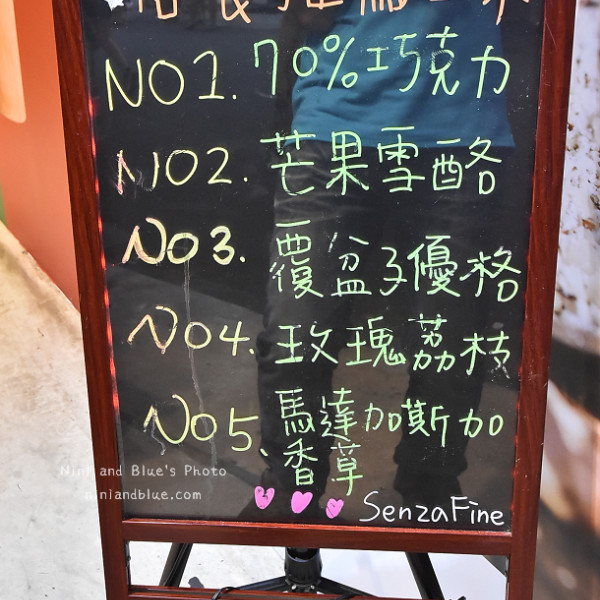 NO1. 70%巧克力
NO2. 芒果雪酪
NO3. 覆盆子優格
NO4. 玫瑰荔枝
NO5. 馬達加斯加
香草
SenzaFine
Nini and Blue's Photo
niniandblue.com